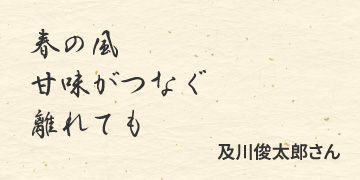 春の風
甘味がつなぐ
離れても
及川俊太郎さん